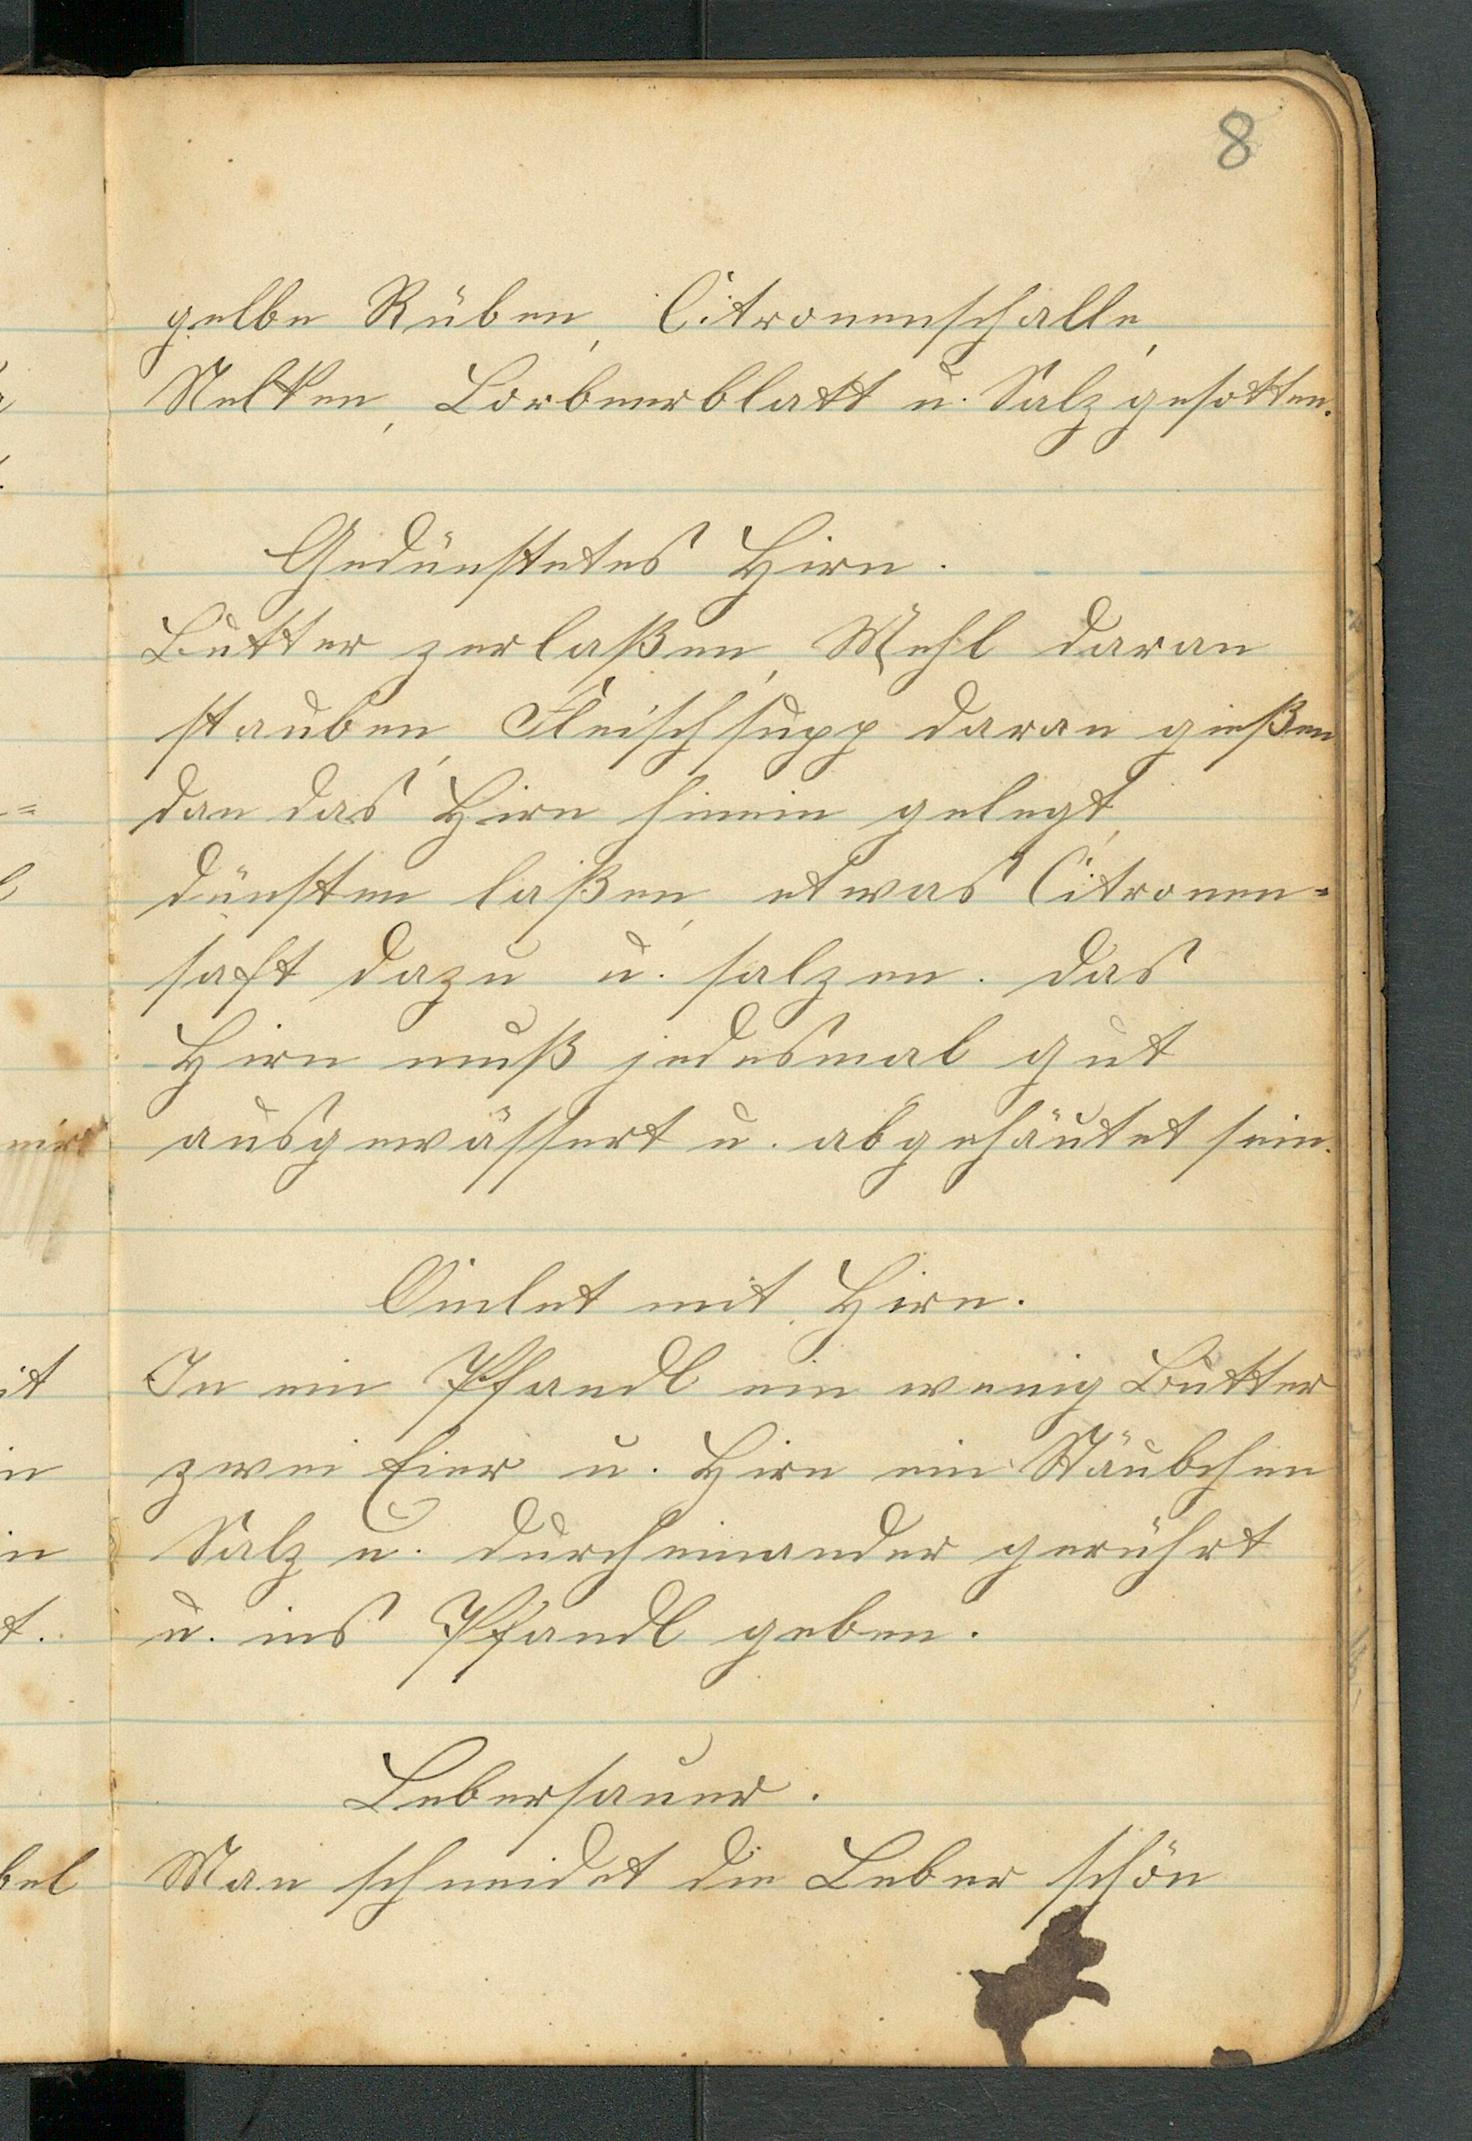 8
gelbe Rüben, Citronenschalle,
Nelken, Lorbeerblatt u. Salz gesotten.
Gedünstetes Hirn.
Butter zerlaßen, Mehl daran
stauben, Fleischsupp daran gießen
dan das Hirn hinein gelegt,
dünsten laßen, etwas Citronen=
saft dazu u. salzen. das
Hirn muß jedesmal gut
ausgewässert u. abgehäutet sein.
Omlet mit Hirn.
In ein Pfandl ein wenig Butter
zwei Eier u. Hirn ein Stäubchen
Salz u. durcheinander gerührt
u. ins Pfandl geben.
Lebersauer.
Man schneidet die Leber schön